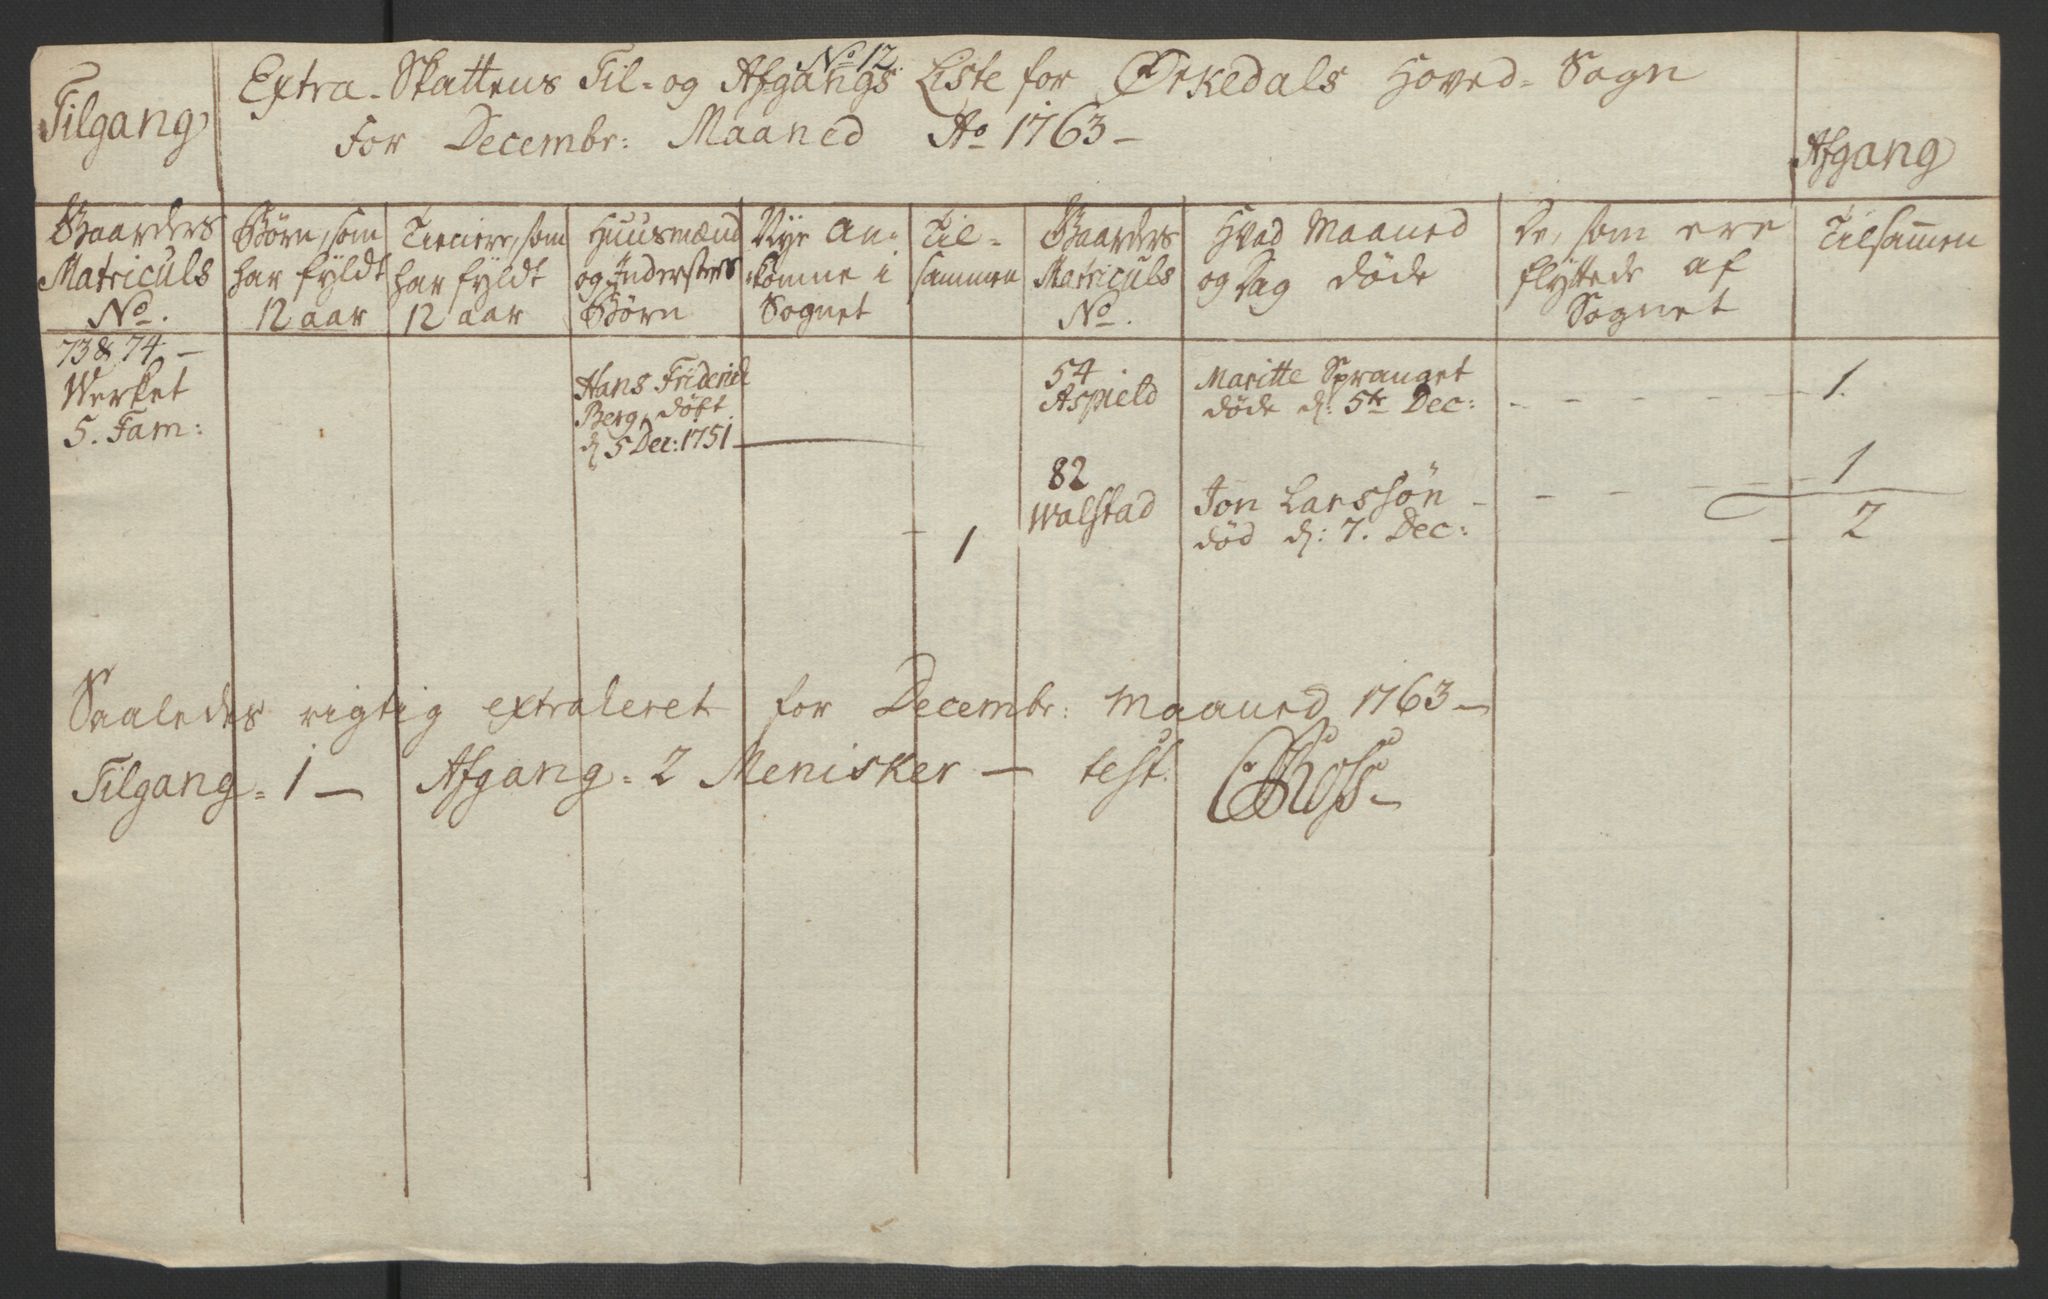 No 12.
Tilgang
Extra-Skattens Til- og Afgangs Liste for Ørkedals Hoved-Sogn
For Decembr: Maaned Ao 1763 –
Afgang
Gaarders Matriculs No.
Børn, som har fyldt 12 aar
Tienere, som har fyldt 12 aar
Huusmænd og Indersters Børn
Nye An-komne i Sognet
Til-sammen
Gaarders Matriculs No.
Hvad Maaned og Dag døde
De, som ere flyttede af Sognet
Tilsammen
73 & 74 –
Werket
5. Fam:
Hans Friderich
Berg, døbt
d 5 Dec: 1751 –
1
54
Aspield
Maritte Spranget
døde d: 5te Dec: - - - - - 1.
82
Walstad
Jon Larssøn - - - - - 1
død d: 7. Dec:
- 2
Saaledes rigtig extraheret for Decembr: Maaned 1763 –
Tilgang = 1 – Afgang = 2 Menisker – test.